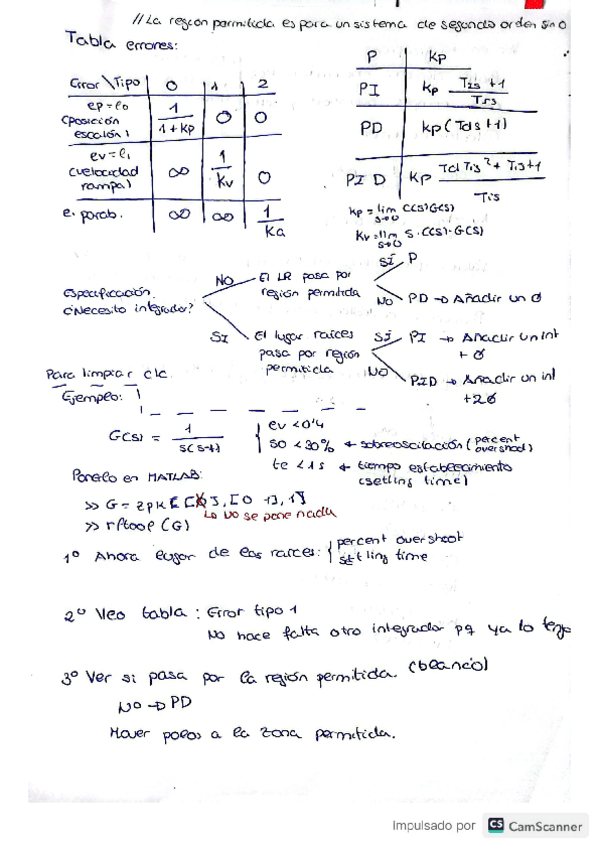 // La región permitida es para un sistema de segundo orden sin 0
Tabla errores:
Error \ Tipo | 0 | 1 | 2
ep = e0 (posición escalón) | 1/(1+Kp) | 0 | 0
ev = e1 (velocidad rampa) | ∞ | 1/Kv | 0
e. parab. | ∞ | ∞ | 1/Ka
P | Kp
PI | Kp (Tis+1)/(Tis)
PD | Kp (Tds+1)
PID | Kp (TdTis²+Tis+1)/(Tis)
Kp = lim s→0 C(s)G(s)
Kv = lim s→0 s·C(s)·G(s)
Especificación
¿Necesito integrador?
NO
El LR pasa por
región permitida
SÍ P
NO PD → Añadir un 0
SI
El lugar raíces
pasa por región
permitida
SÍ PI → Añadir un int
+ 0
NO PID → Añadir un int
+20
Para limpiar clc
Ejemplo:
G(s) = 1/(s(s+1))
ev < 0'4
SO < 30% ← sobreoscilación (percent overshoot)
te < 1s ← tiempo establecimiento
(setling time)
Ponerlo en MATLAB:
>> G = zpk([],[0 1],1)
Lo no se pone nada
>> rltool (G)
1º Ahora lugar de las raíces: percent overshoot
setling time
2º Veo tabla : Error tipo 1
No hace falta otro integrador pq ya lo tengo
3º Ver si pasa por la región permitida. (blanco)
NO → PD
Mover polos a la zona permitida.
Impulsado por CS CamScanner